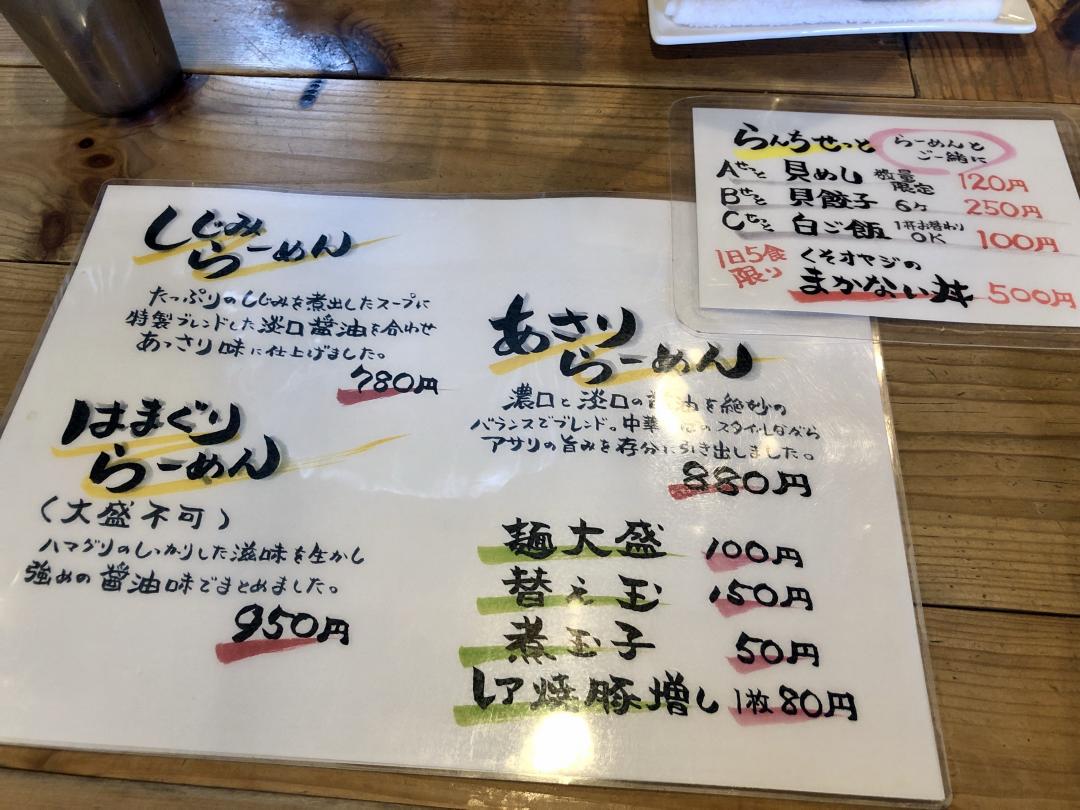 しじみ
らーめん
たっぷりのしじみを煮出したスープに
特製ブレンドした淡口醤油を合わせ
あっさり味に仕上げました。
780円
はまぐり
らーめん
(大盛不可)
ハマグリのしっかりした滋味を生かし
強めの醤油味でまとめました。
950円
あさり
らーめん
濃口と淡口の醤油を絶妙の
バランスでブレンド。中華のスタイルながら
アサリの旨みを存分に引き出しました。
880円
麺大盛 100円
替え玉 150円
煮玉子 50円
レア焼豚増し 1枚80円
らんちせっと らーめんと
ご一緒に
Aせっと 貝めし 数量限定 120円
Bせっと 貝餃子 6ヶ 250円
Cせっと 白ご飯 1杯お替わりOK 100円
1日5食限り くそオヤジの
まかない丼 500円